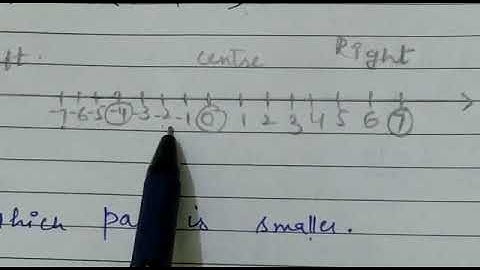 centre Right
-7 -6 -5 -4 -3 -2 -1 0 1 2 3 4 5 6 7
which is smaller.